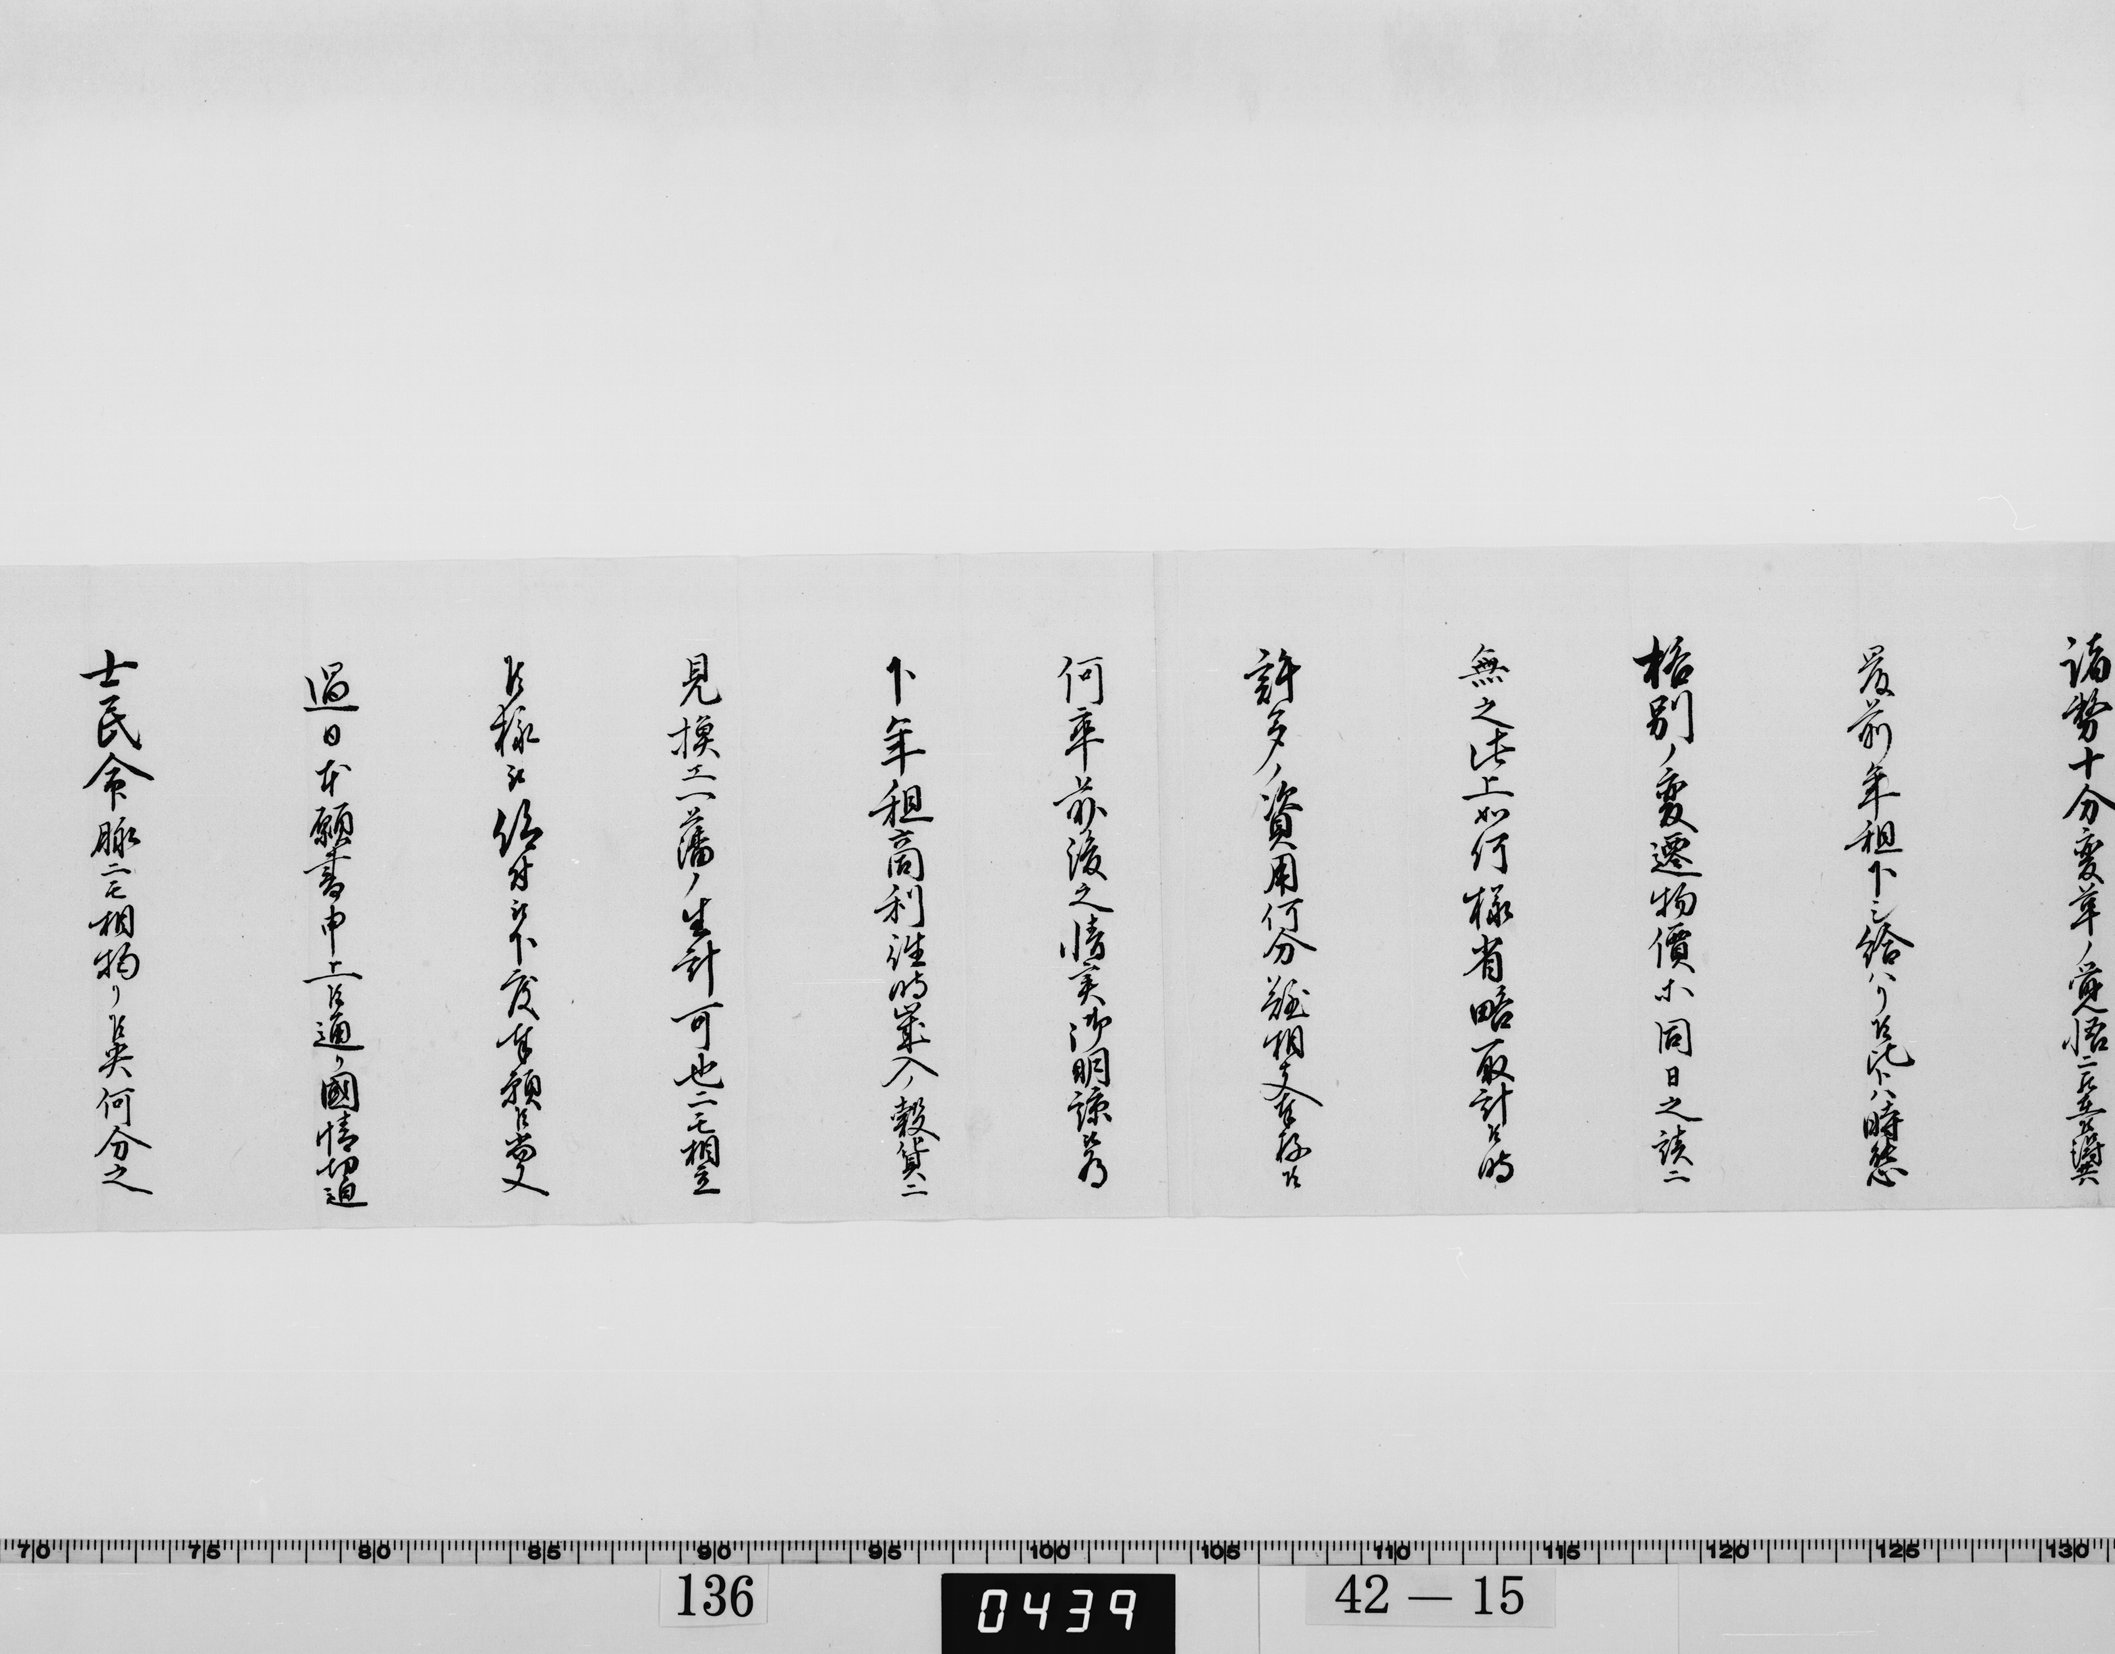 諸務十分変革ノ覚悟ニ
最前年租下シ給ハリ候比トハ時態
格別ノ変遷物價亦同日之談ニ
無之此上如何様省略取計候時
許多ノ資用何分難相支奉存候
何卒前後之情実御明諒
下年租高利往時歳入ノ穀貨ニ
見換エ一藩ノ生計可也ニモ相立
候様被仰付被下度奉願候尚又
過日本願書申上候通リ國情切迫
士民命脉ニモ相拘リ候央何分之
70 75 80 85 90 95 100 105 110 115 120 125 130
136
0439
42-15